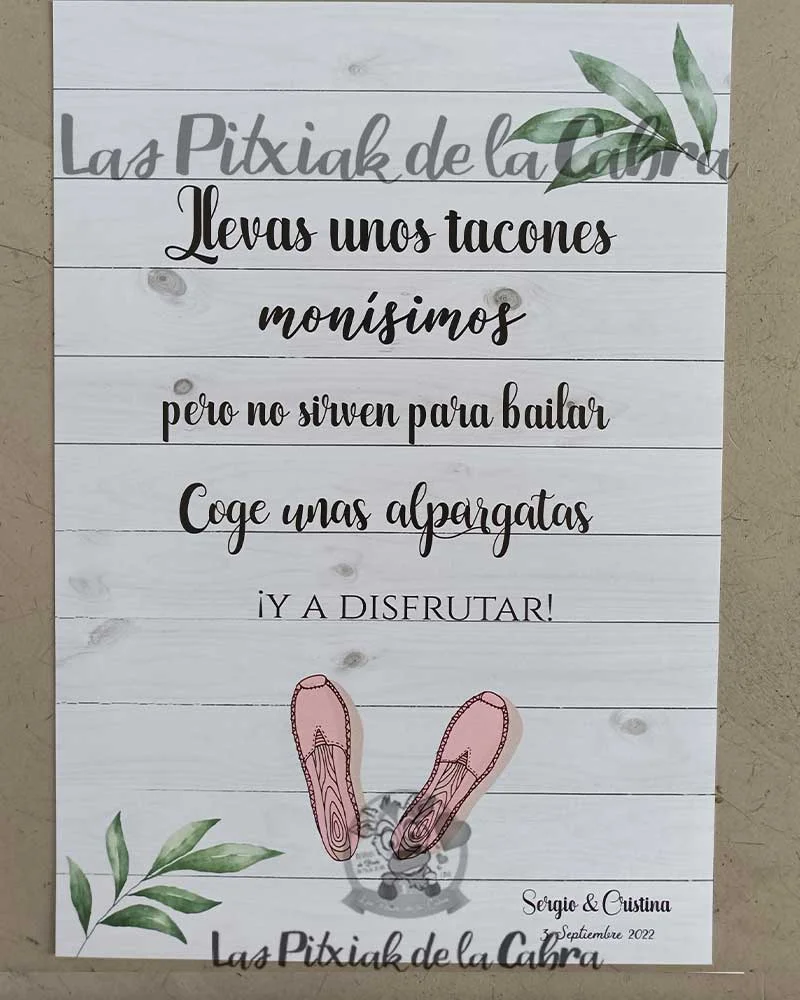 Las Pitxiak de la Cabra
Llevas unos tacones
monísimos
pero no sirven para bailar
Coge unas alpargatas
¡Y A DISFRUTAR!
Sergio & Cristina
3 Septiembre 2022
Las Pitxiak de la Cabra